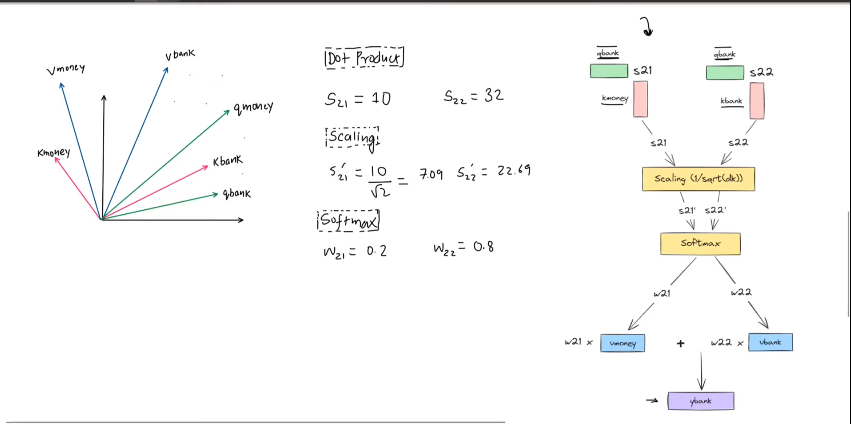 Vmoney
Vbank
qmoney
Kmoney
Kbank
qbank
Dot Product
S21 = 10 S22 = 32
Scaling
S'21 = 10/√2 = 7.09 S'22 = 22.69
Softmax
W21 = 0.2 W22 = 0.8
qbank qbank
s21 s22
kmoney kbank
s21 s22
Scaling (1/sqrt(dk))
s21' s22'
Softmax
w21 w22
w21 x vmoney + w22 x vbank
ybank